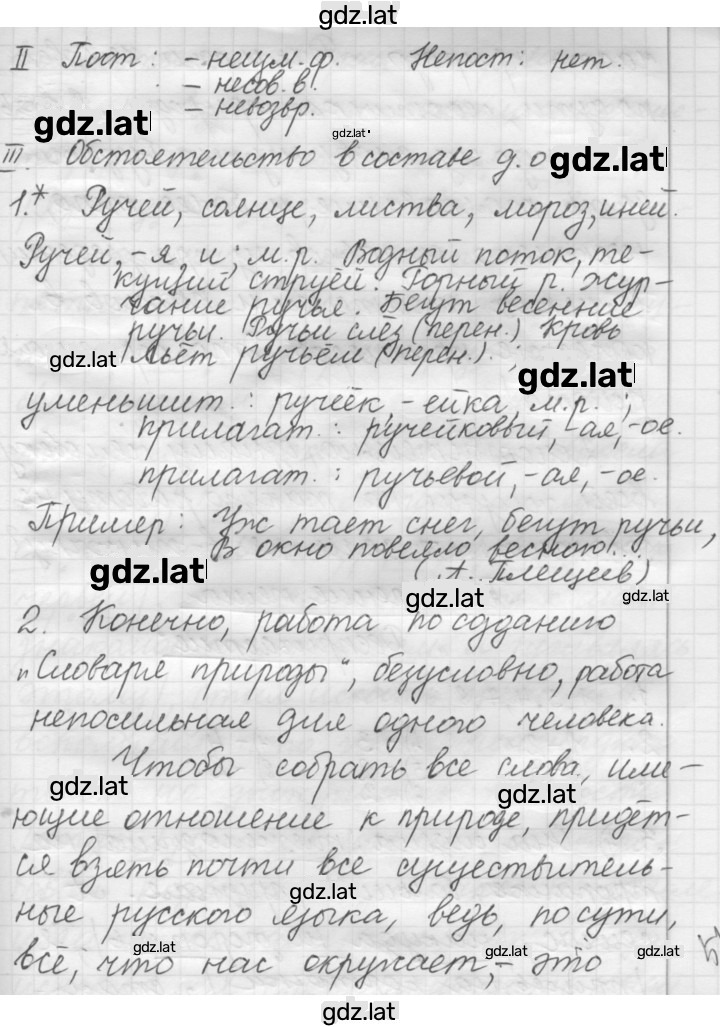 gdz.lat
II Пост: - неизм. ф. Непост: нет.
- несов. в.
- невозвр.
gdz.lat gdz.lat
III. Обстоятельство в составе д. о gdz.lat
1.* Ручей, солнце, листва, мороз, иней.
Ручей, -я, и; м.р. Водный поток, те-
кущий струёй. Горный р. Жур-
чание ручье. Бегут весенние
ручьи. Ручьи слёз (перен.) Кровь
gdz.lat льёт ручьём (перен.).;
gdz.lat
уменьшит.: ручеёк, -ейка, м.р.;
прилагат.: ручейковый, -ая, -ое.
прилагат.: ручьевой, -ая, -ое.
Пример: Уж тает снег, бегут ручьи,
В окно повеяло весною...
gdz.lat (А. Плещеев)
gdz.lat gdz.lat
2. Конечно, работа по созданию
"Словаря природы", безусловно, работа
непосильная для одного человека.
Чтобы собрать все слова, име-
gdz.lat gdz.lat
ющие отношение к природе, придёт-
ся взять почти все существитель-
gdz.lat
ные русского языка, ведь, по сути,
gdz.lat gdz.lat gdz.lat
всё, что нас окружает, - это
gdz.lat